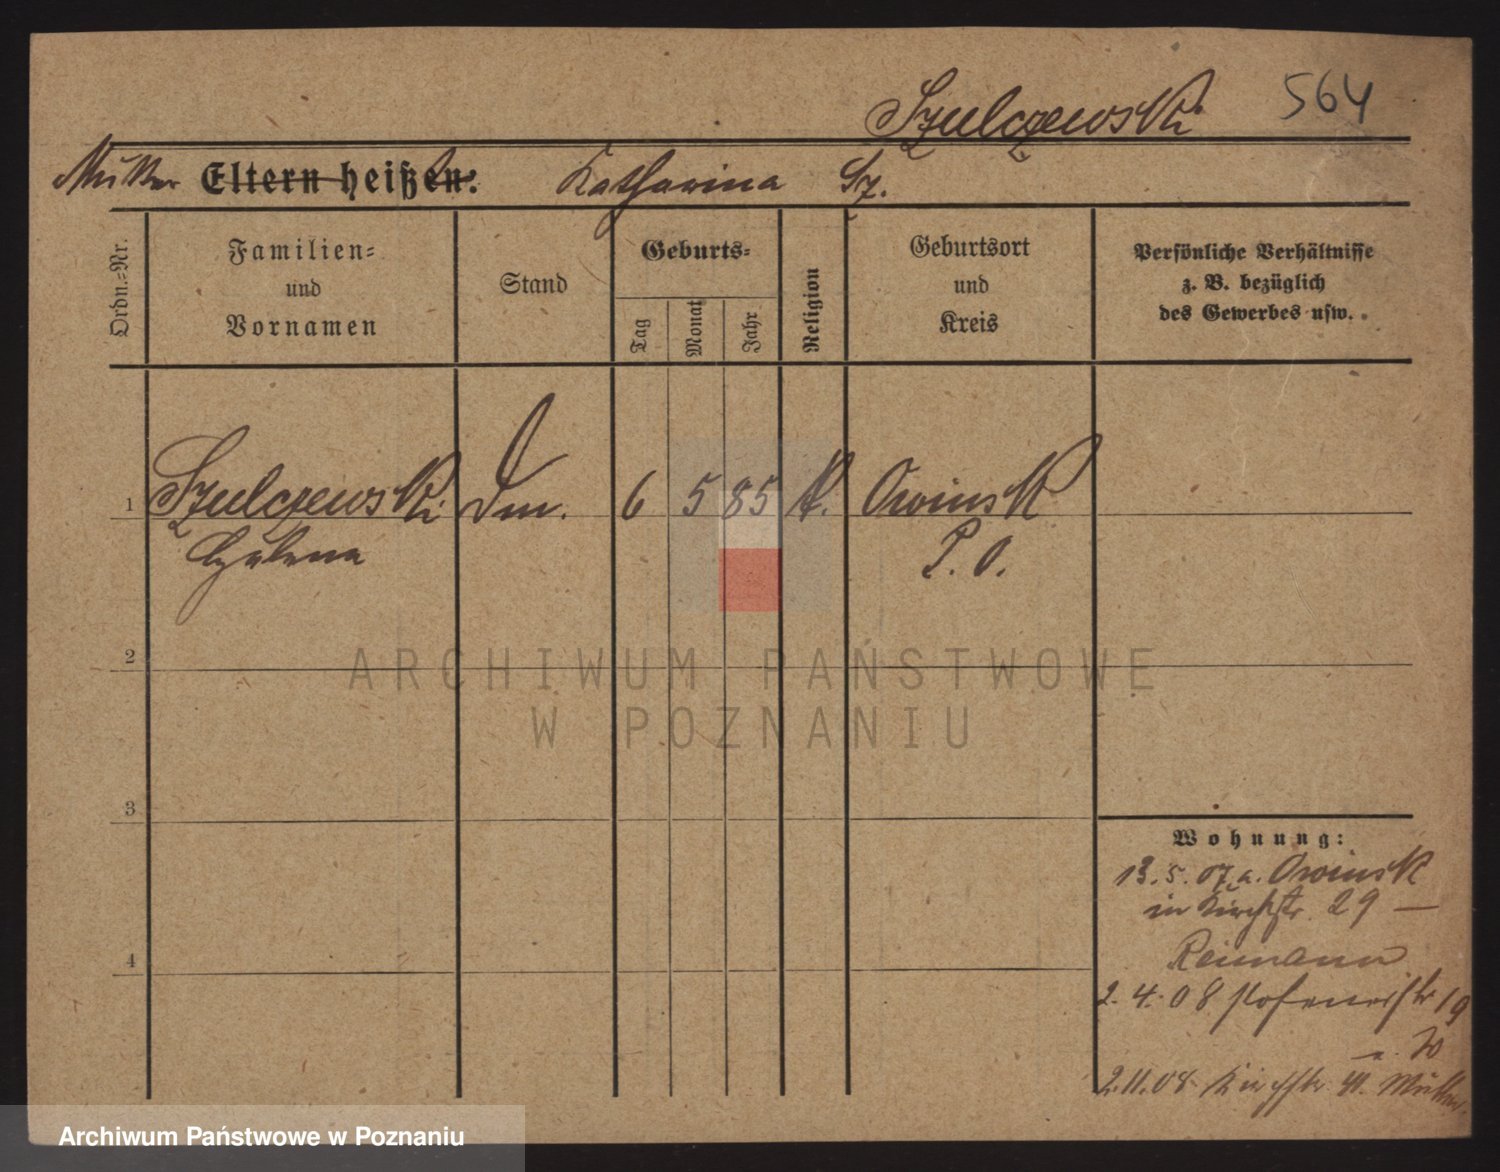 Szulczewski 564
Mutter Eltern heißen: Katharina Sz.
Ordn.=Nr.
Familien=
und
Vornamen
Stand
Geburts=
Tag
Monat
Jahr
Religion
Geburtsort
und
Kreis
Persönliche Verhältnisse
z. B. bezüglich
des Gewerbes usw.
1 Szulczewski 6 5 85 k. Owinsk
Helena P. O.
2
3
4
Wohnung:
13. 5. 07 a. Owinsk
in Kirchstr. 29 —
Reimann
2. 4. 08 19
2. 11. 08 Kirchstr. Mutter
ARCHIWUM PAŃSTWOWE
W POZNANIU
Archiwum Państwowe w Poznaniu